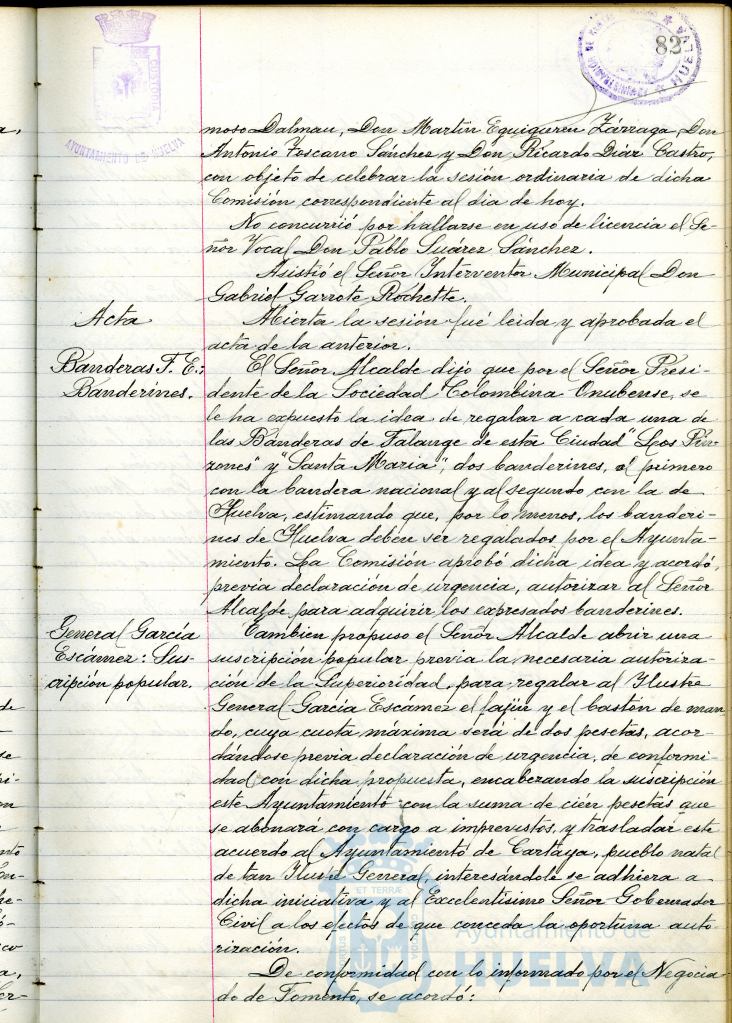 82
AYUNTAMIENTO DE HUELVA
moso Dalmau, Don Martín Eguiguren Zárraga, Don
Antonio Toscano Sánchez y Don Ricardo Díaz Castro,
con objeto de celebrar la sesión ordinaria de dicha
Comisión correspondiente al dia de hoy.
No concurrió por hallarse en uso de licencia el Se-
ñor Vocal Don Pablo Suarez Sánchez.
Asistió el Señor Interventor Municipal Don
Gabriel Garrote Rochette.
Acta
Abierta la sesión fué leida y aprobada el
acta de la anterior.
Banderas F. E.:
Banderines.
El Señor Alcalde dijo que por el Señor Presi-
dente de la Sociedad Colombina Onubense, se
le ha expuesto la idea de regalar a cada una de
las Banderas de Falange de esta Ciudad "Los Pin-
zones" y "Santa Maria", dos banderines, el primero
con la bandera nacional y al segundo con la de
Huelva, estimando que, por lo menos, los banderi-
nes de Huelva deben ser regalados por el Ayunta-
miento. La Comisión aprobó dicha idea y acordó,
previa declaración de urgencia, autorizar al Señor
Alcalde para adquirir los expresados banderines.
General García
Escámez: Sus-
cripción popular.
Tambien propuso el Señor Alcalde abrir una
suscripción popular previa la necesaria autoriza-
ción de la Superioridad, para regalar al Ilustre
General García Escámez el fajin y el bastón de man-
do, cuya cuota máxima será de dos pesetas, acor-
dándose previa declaración de urgencia, de conformi-
dad con dicha propuesta, encabezando la suscripción
este Ayuntamiento con la suma de cién pesetas que
se abonará con cargo a imprevistos, y trasladar este
acuerdo al Ayuntamiento de Cartaya, pueblo natal
de tan Ilustre General, interesándole se adhiera a
dicha iniciativa y al Excelentísimo Señor Gobernador
Civil a los efectos de que conceda la oportuna auto-
rización.
De conformidad con lo informado por el Negocia-
do de Fomento, se acordó:
Ayuntamiento de
HUELVA